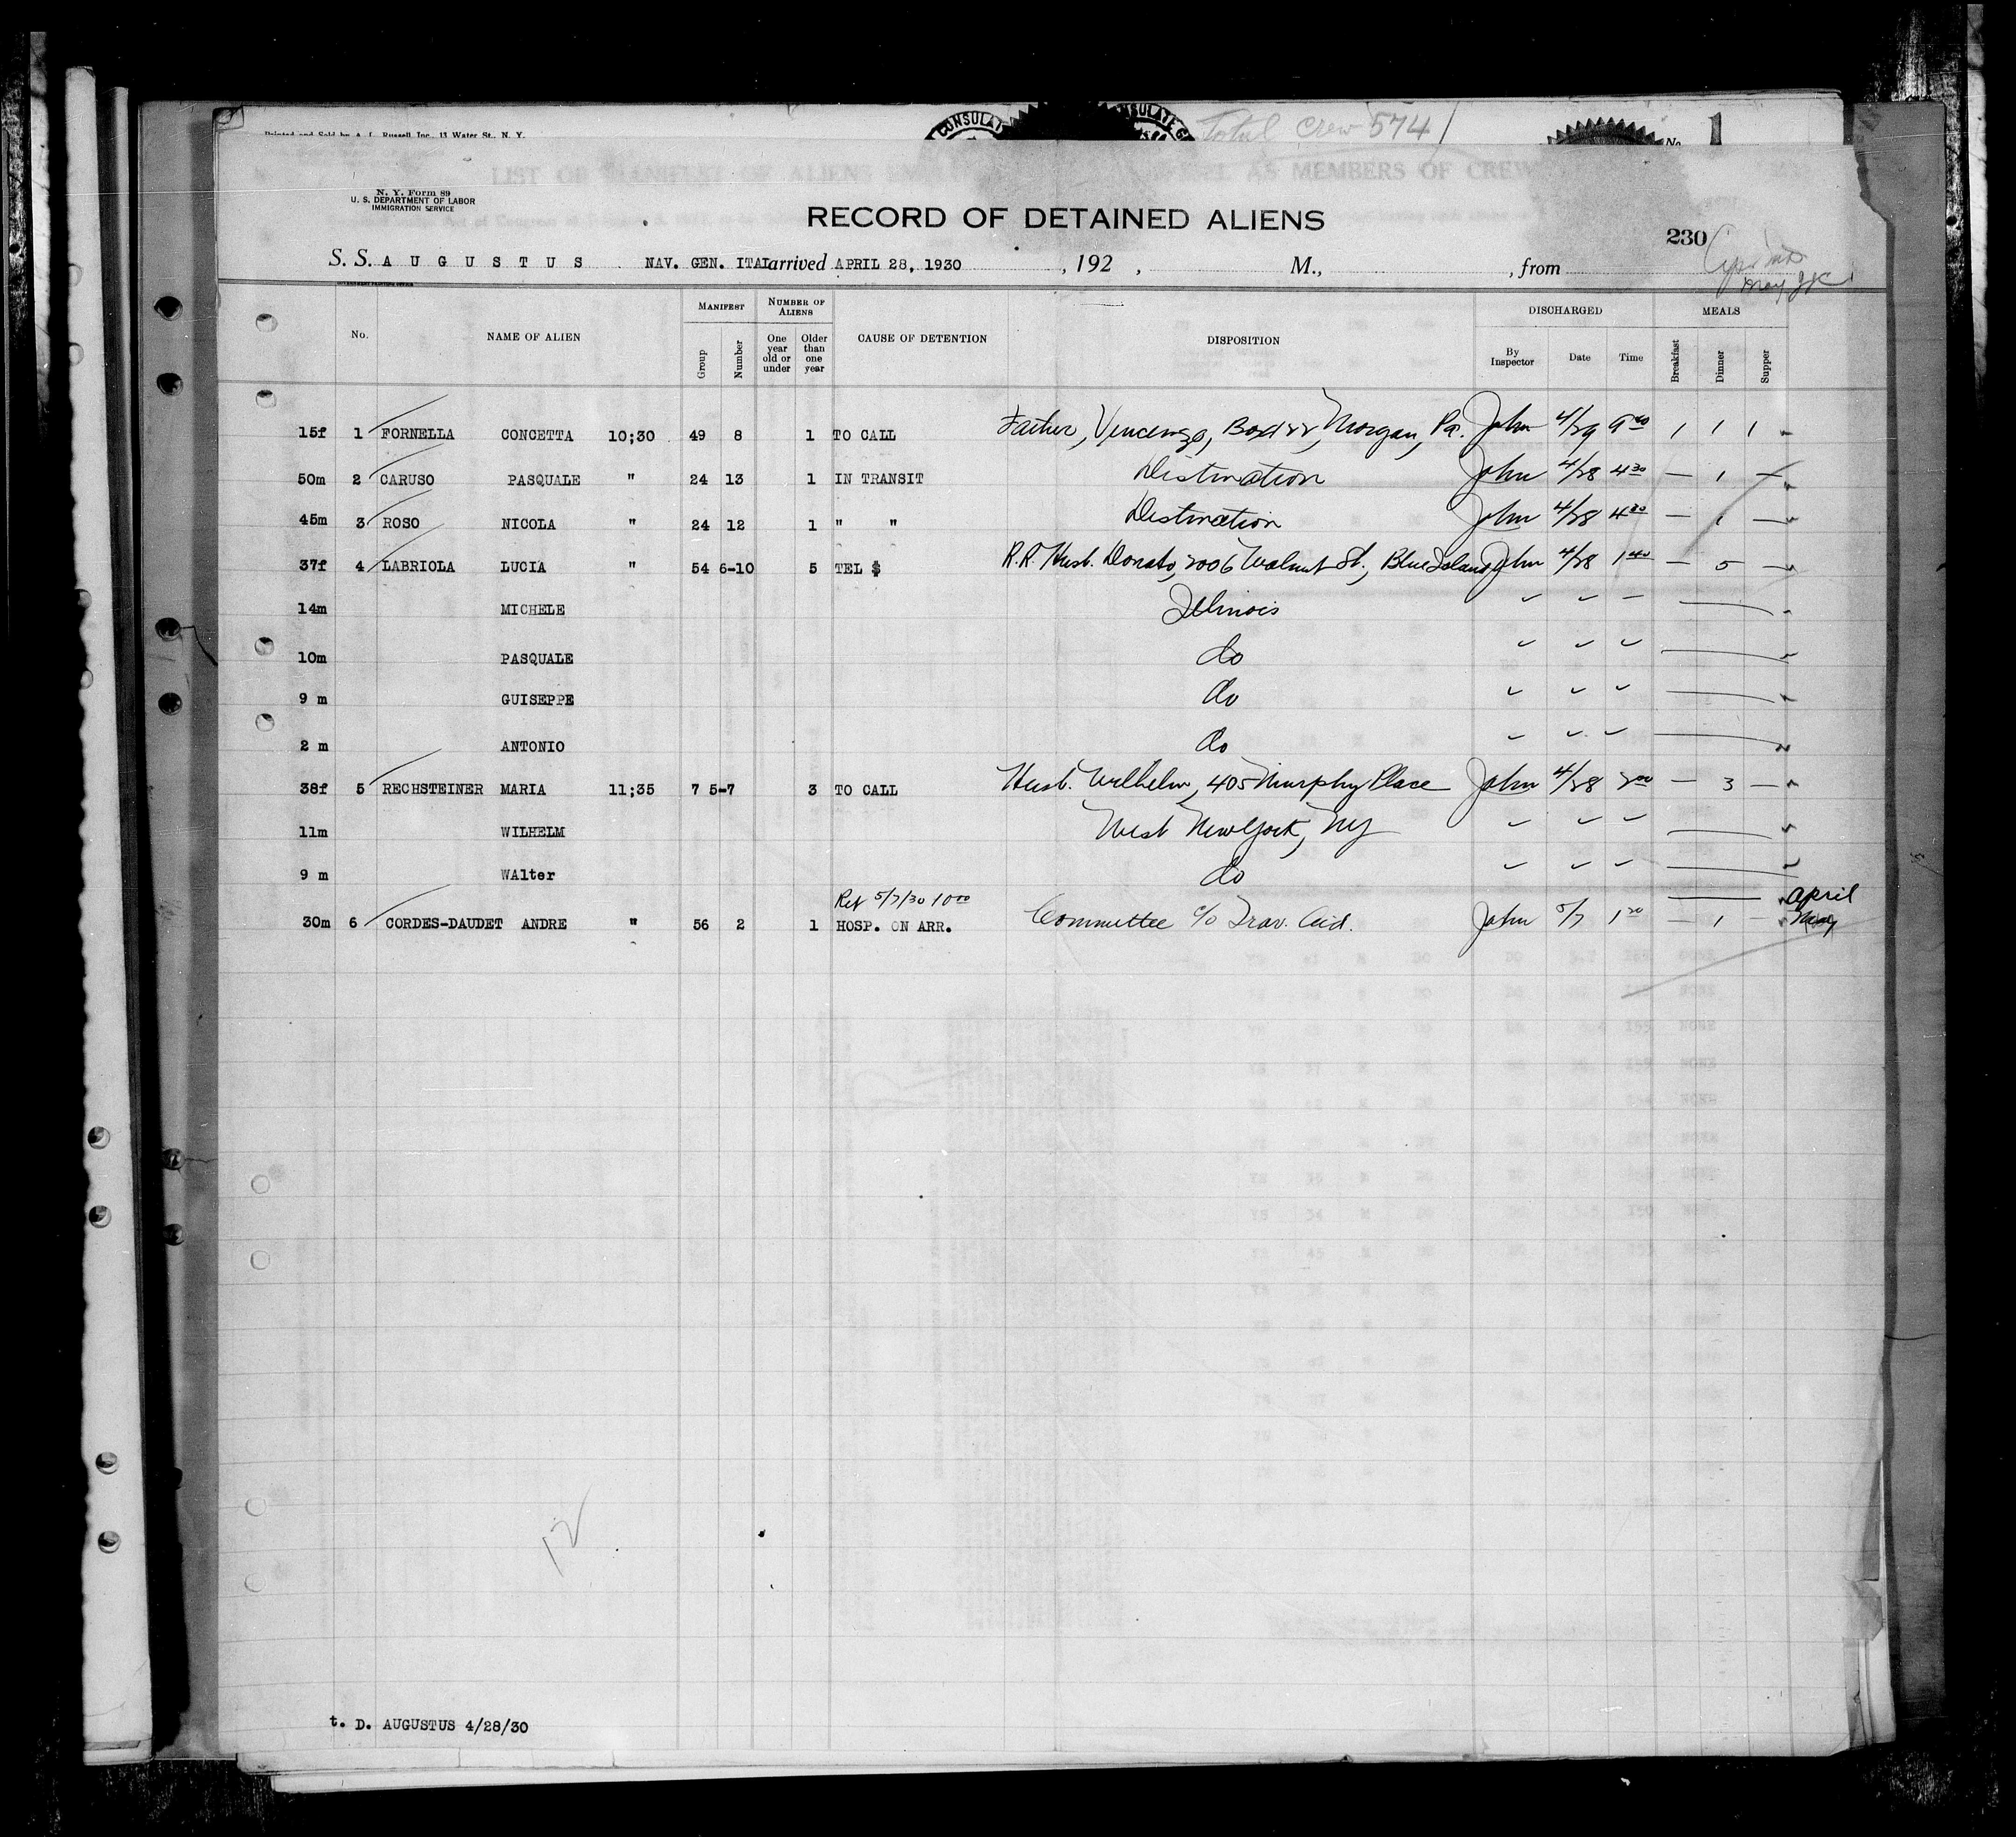 Printed and Sold by A. L. Russell, Inc., 13 Water St., N. Y.
CONSULAT
Total Crew 574
No. 1
LIST OR MANIFEST OF ALIENS AS MEMBERS OF CREW
N. Y. Form 89
U. S. DEPARTMENT OF LABOR
IMMIGRATION SERVICE
RECORD OF DETAINED ALIENS
230
S. S. A U G U S T U S NAV. GEN. ITAL arrived APRIL 28, 1930 , 192 , M., , from
No. NAME OF ALIEN MANIFEST Group Number NUMBER OF ALIENS One year old or under Older than one year CAUSE OF DETENTION DISPOSITION DISCHARGED By Inspector Date Time MEALS Breakfast Dinner Supper
15f 1 FORNELLA CONCETTA 10;30 49 8 1 TO CALL Father, Vincenzo, Box Morgan, Pa. John 4/29 9 00 1 1 1
50m 2 CARUSO PASQUALE " 24 13 1 IN TRANSIT Destination John 4/28 4 30 — 1 —
45m 3 ROSO NICOLA " 24 12 1 " " Destination John 4/28 4 30 — 1 —
37f 4 LABRIOLA LUCIA " 54 6-10 5 TEL $ R.R. Husb. Donato, 2006 Walnut St., Blue Island John 4/28 1 40 — 5 —
14m MICHELE Illinois
10m PASQUALE do
9 m GUISEPPE do
2 m ANTONIO do
38f 5 RECHSTEINER MARIA 11;35 7 5-7 3 TO CALL Husb. Wilhelm, 405 Murphy Place John 4/28 2 00 — 3 —
11m WILHELM West New York, NJ
9 m WAlter do
Ret 5/7/30 10 00 April
30m 6 CORDES-DAUDET ANDRE " 56 2 1 HOSP. ON ARR. Committee c/o Trav. Aid. John 5/7 1 20 — 1 May
12
t. D. AUGUSTUS 4/28/30